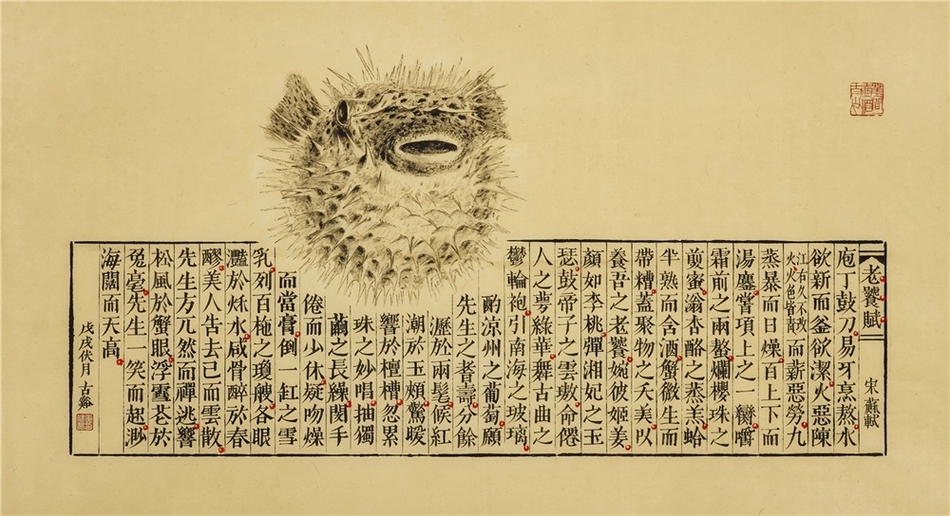 老饕賦
宋 蘇軾
庖丁鼓刀易牙烹熬水
欲新而釜欲潔火惡陳
江右久不改火火色皆青而薪惡勞九
蒸暴而日燥百上下而
湯鏖嘗項上之一臠嚼
霜前之兩螯爛櫻珠之
煎蜜滃杏酪之蒸羔蛤
半熟而含酒蟹微生而
帶糟蓋聚物之夭美以
養吾之老饕婉彼姬姜
顏如李桃彈湘妃之玉
瑟鼓帝子之雲璈命僊
人之萼綠華舞古曲之
鬱輪袍引南海之玻瓈
酌涼州之葡萄願
先生之耆壽分餘
瀝於兩髦候紅
潮於玉頰驚暖
響於檀槽忽累
珠之妙唱抽獨
繭之長繰閔手
倦而少休疑吻燥
而當膏倒一缸之雪
乳列百柂之瓊艘各眼
灩於秌水咸骨醉於春
醪美人告去已而雲散
先生方兀然而禪逃響
松風於蟹眼浮雪花於
兔毫先生一笑而起渺
海闊而天高
戊戌伏月 古谿